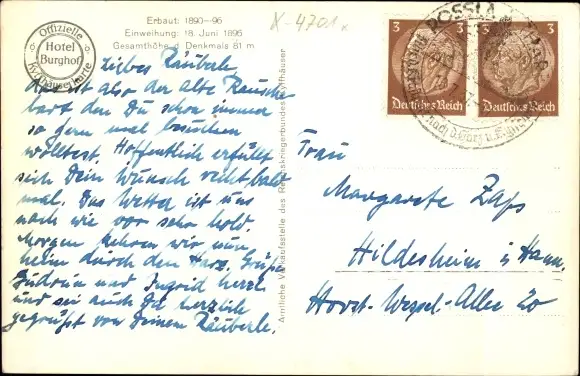 Erbaut: 1890-96
Einweihung: 18. Juni 1896
Gesamthöhe d. Denkmals 81 m
X-4701
Offizielle
Hotel
Burghof
Kyffhäuserkarte
Liebes Räuberle
Das ist also der alte Rausche
bart den Du schon immer
so gern mal besuchen
wolltest. Hoffentlich erfüllt
sich Dein Wunsch recht bald
mal. Das Wetter ist uns
nach wie vor sehr hold.
Morgen fahren wir nun
heim durch den Harz. Grüße
Gudrun und Ingrid herzl.
und sei auch Du herzlich
gegrüßt von Deinem Räuberle.
Amtliche Verkaufsstelle des Reichskriegerbundes Kyffhäuser
3 3
Deutsches Reich Deutsches Reich
ROSSLA
Frau
Margarete Zaps
Hildesheim i. Hann.
Horst-Wessel-Allee 20